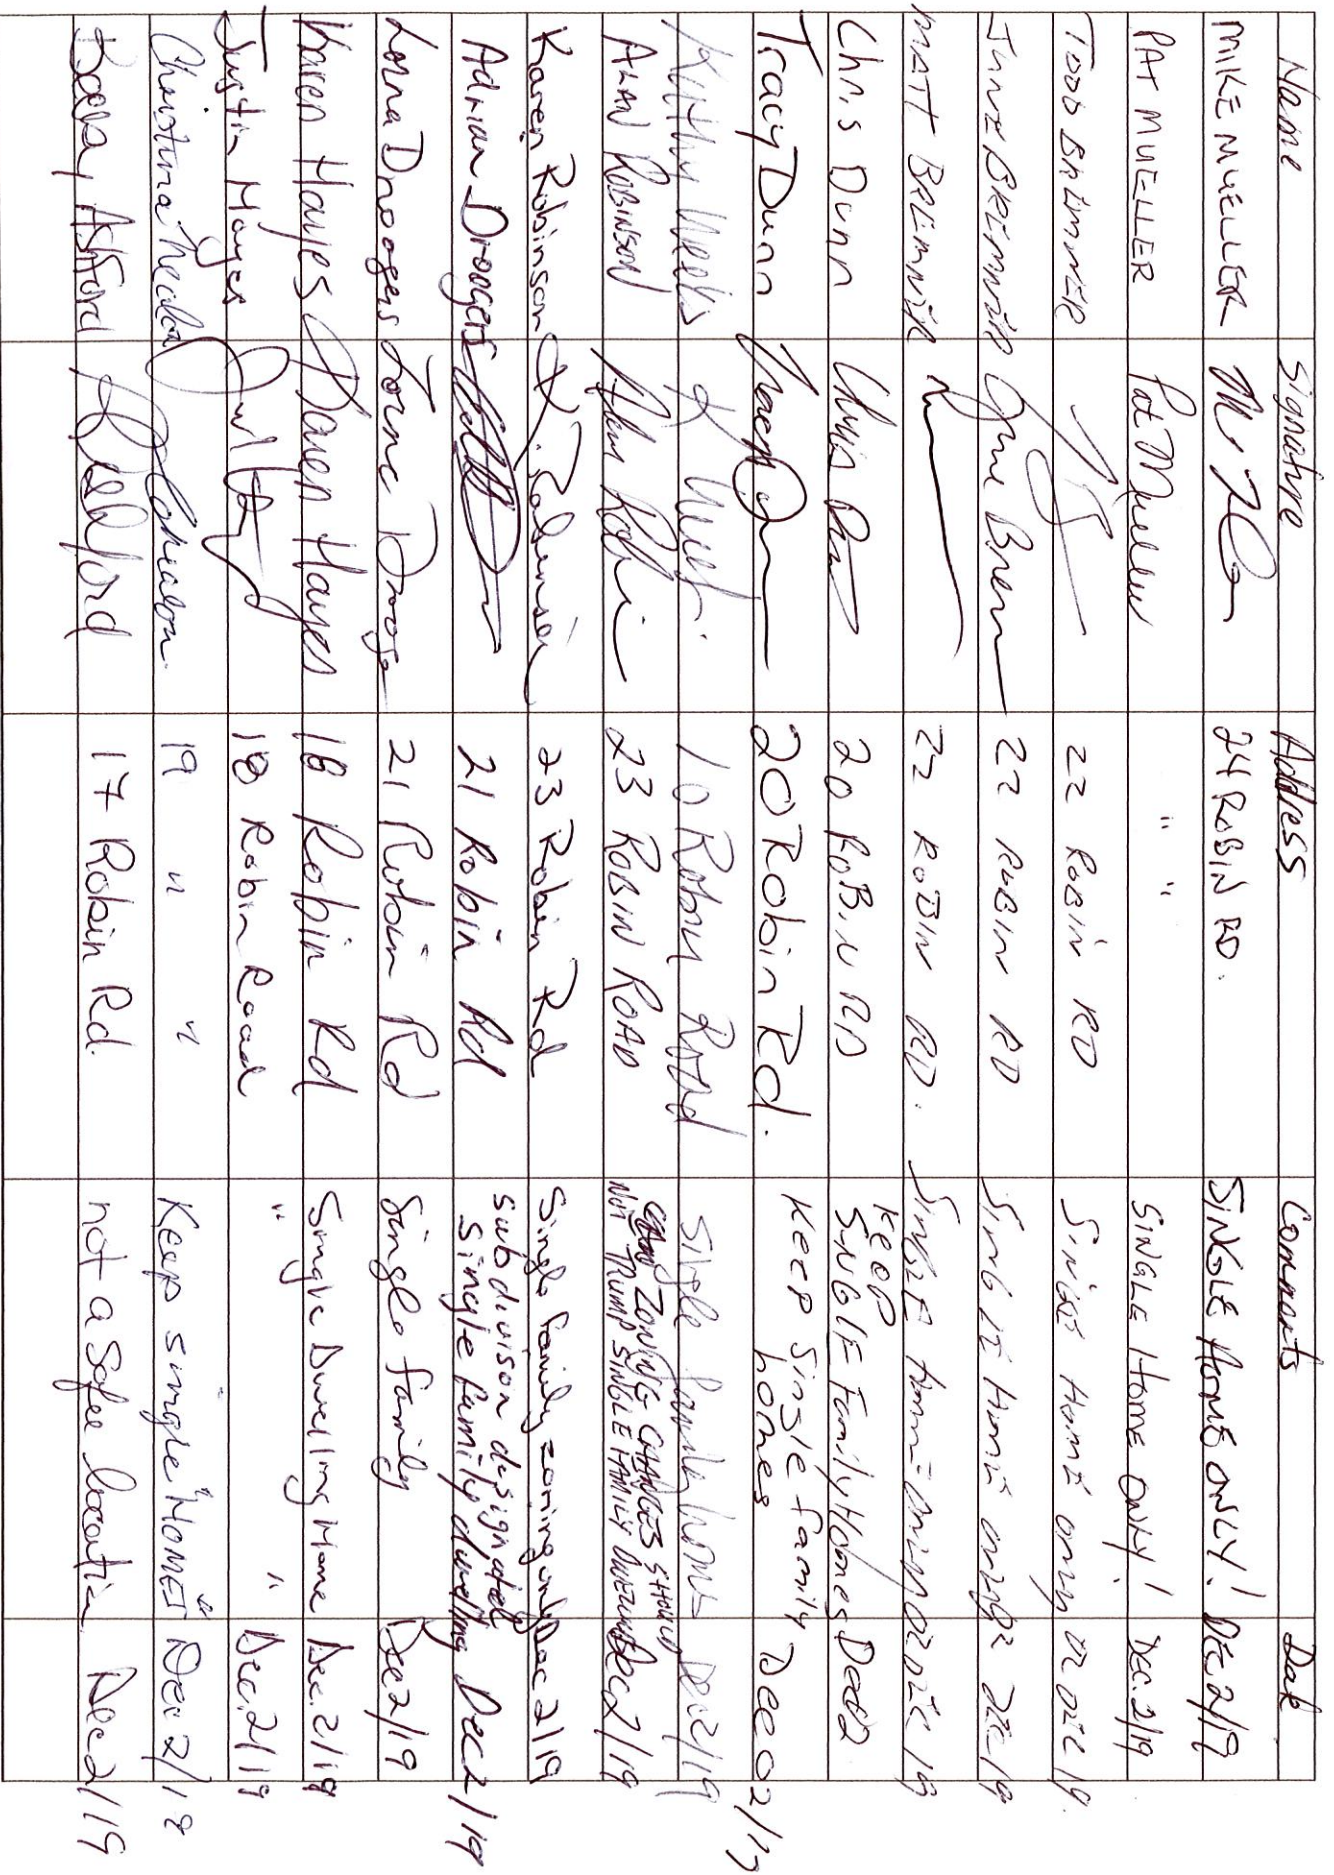 Name Signature Address Comments Date
MIKE MUELLER 24 ROBIN RD. SINGLE HOME ONLY! DEC 2/19
PAT MUELLER Pat Mueller " " SINGLE HOME ONLY! DEC. 2/19
TODD BREIMNER 22 ROBIN RD SINGLE HOME ONLY 02 DEC 19.
JUNE BREIMNER June 22 ROBIN RD SINGLE HOME ONLY 02 DEC 19
MATT BREIMNER 22 ROBIN RD. SINGLE HOME ONLY 02 DEC 19
Chris Dunn Chris 20 ROBIN RD KEEP
SINGLE Family Homes Dec 02
Tracy Dunn 20 Robin Rd. KEEP Single family
homes Dec 02/19
Kathy Weeks 10 Robin Road Single family homes Dec 2/19
ALAN ROBINSON Alan 23 ROBIN ROAD ZONING CHANGES SHOULD
NOT TRUMP SINGLE FAMILY Dec 2/19
Karen Robinson K. Robinson 23 Robin Rd Single family zoning only Dec 2/19
Adrian Droogers 21 Robin Rd subdivison designated
single family dwelling Dec 2/19
Lorna Droogers 21 Robin Rd Single family Dec 2/19
Karen Hayes Karen Hayes 18 Robin Rd Single Dwelling Home Dec. 2/19
Justin Hayes 18 Robin Road " " Dec. 2/19
Christina 19 " " Keep single "HOMES" Dec 2/19
Ashford 17 Robin Rd. not a safe location Dec 2/19